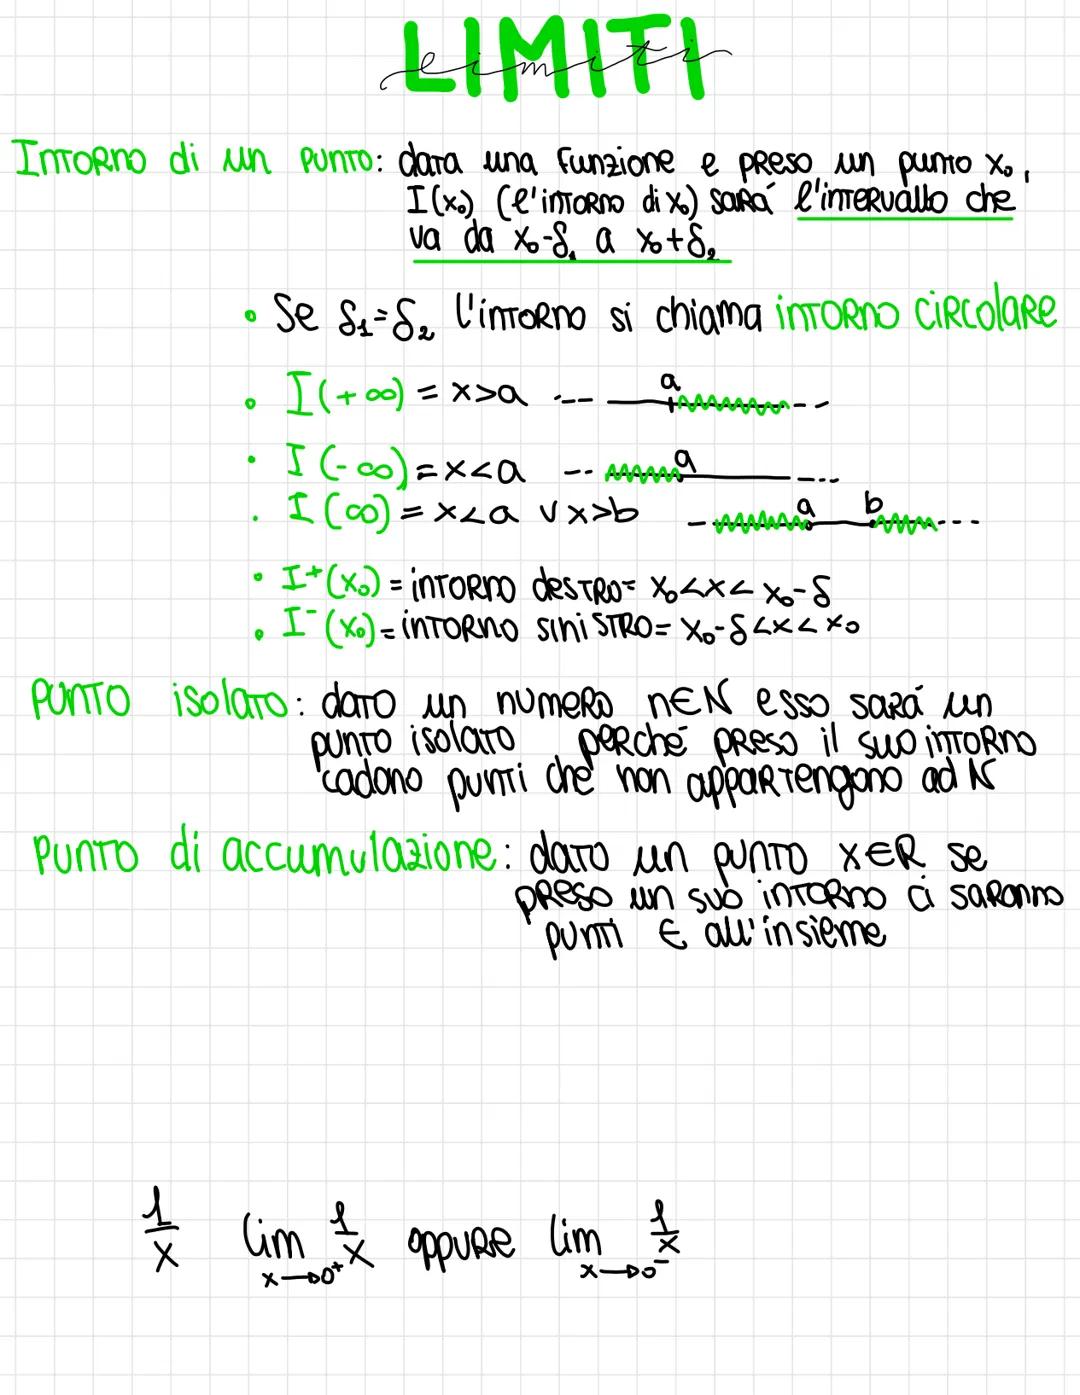 LIMITI
limiti
Intorno di un punto: data una funzione e preso un punto x₀,
I(x₀) (l'intorno di x₀) sará l'intervallo che
va da x₀-δ₁ a x₀+δ₂
• Se δ₁=δ₂ l'intorno si chiama intorno circolare
• I(+∞) = x>a --- a ---
• I(-∞) = x<a --- a ---
• I(∞) = x<a ∨ x>b - a b ---
• I⁺(x₀) = intorno destro = x₀<x< x₀-δ
• I⁻(x₀) = intorno sinistro = x₀-δ<x<x₀
Punto isolato: dato un numero n∈N esso sará un
punto isolato perché preso il suo intorno
cadono punti che non appartengono ad N
Punto di accumulazione: dato un punto x∈R se
preso un suo intorno ci saranno
punti ∈ all'insieme
1/x lim x→0⁺ 1/x oppure lim x→0⁻ 1/x